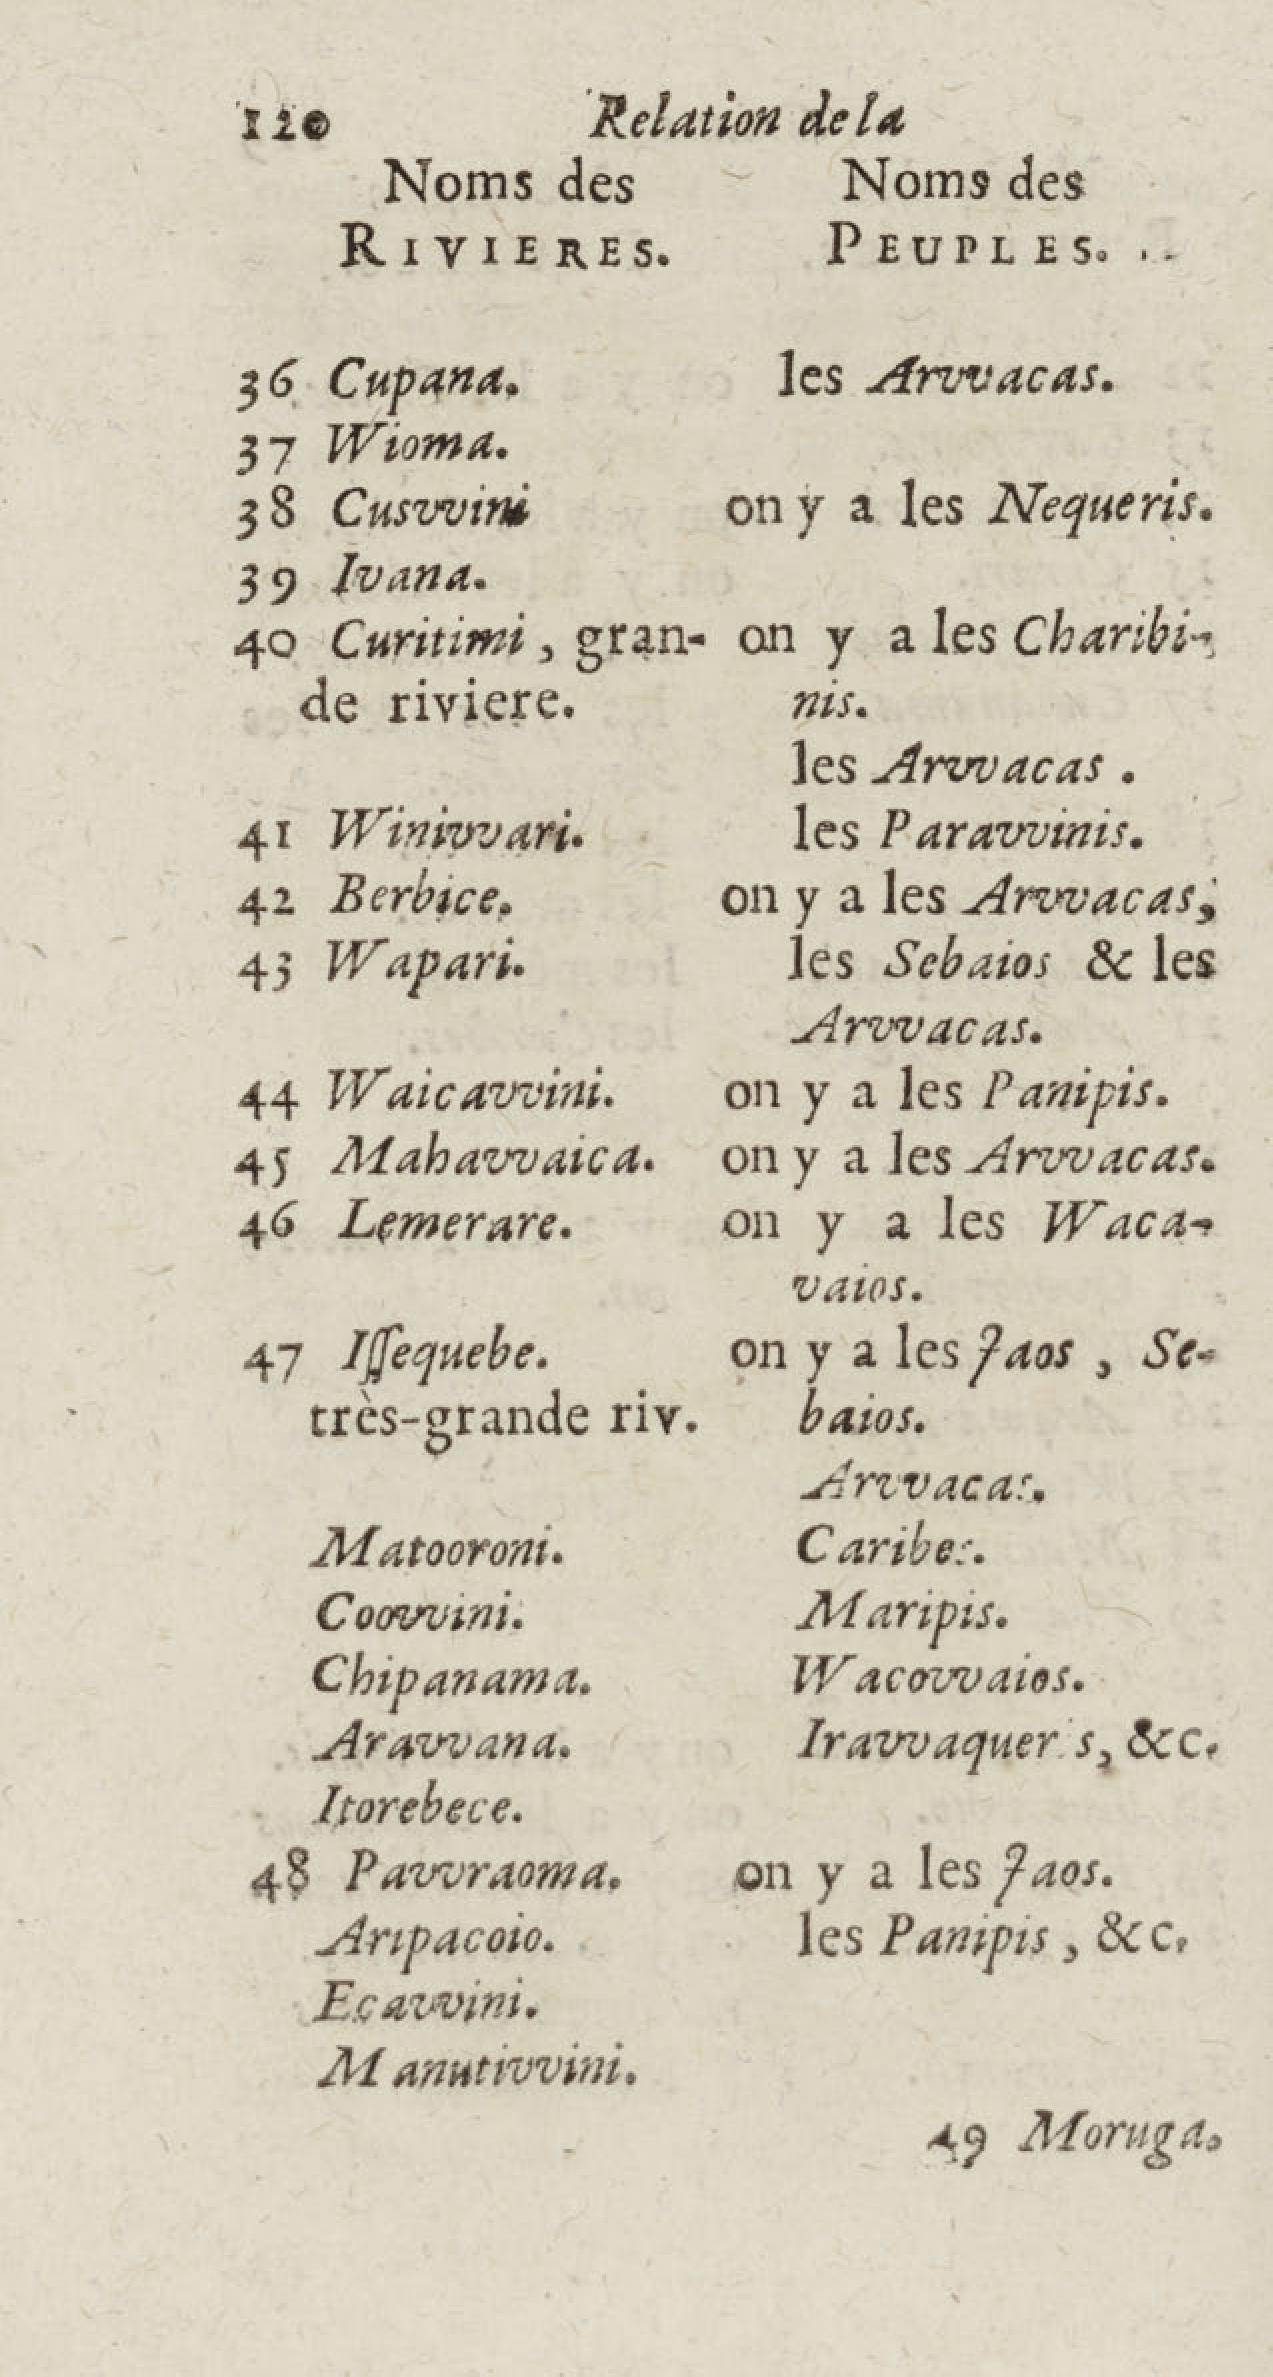 120 Relation de la
Noms des Noms des
RIVIERES. PEUPLES.
36 Cupana. les Arvvacas.
37 Wioma.
38 Cusvvini on y a les Nequeris.
39 Ivana.
40 Curitimi, gran- on y a les Charibi-
de riviere. nis.
les Arvvacas.
41 Winivvari. les Paravvinis.
42 Berbice. on y a les Arvvacas,
43 Wapari. les Sebaios & les
Arvvacas.
44 Waicavvini. on y a les Panipis.
45 Mahavvaica. on y a les Arvvacas.
46 Lemerare. on y a les Waca-
vaios.
47 Iſſequebe. on y a les Jaos, Se-
très-grande riv. baios.
Arvvacas.
Matooroni. Caribes.
Coovvini. Maripis.
Chipanama. Wacovvaios.
Aravvana. Iravvaqueris, &c.
Itorebece.
48 Pavvraoma. on y a les Jaos.
Aripacoio. les Panipis, &c.
Ecavvini.
Manutivvini.
49 Moruga.